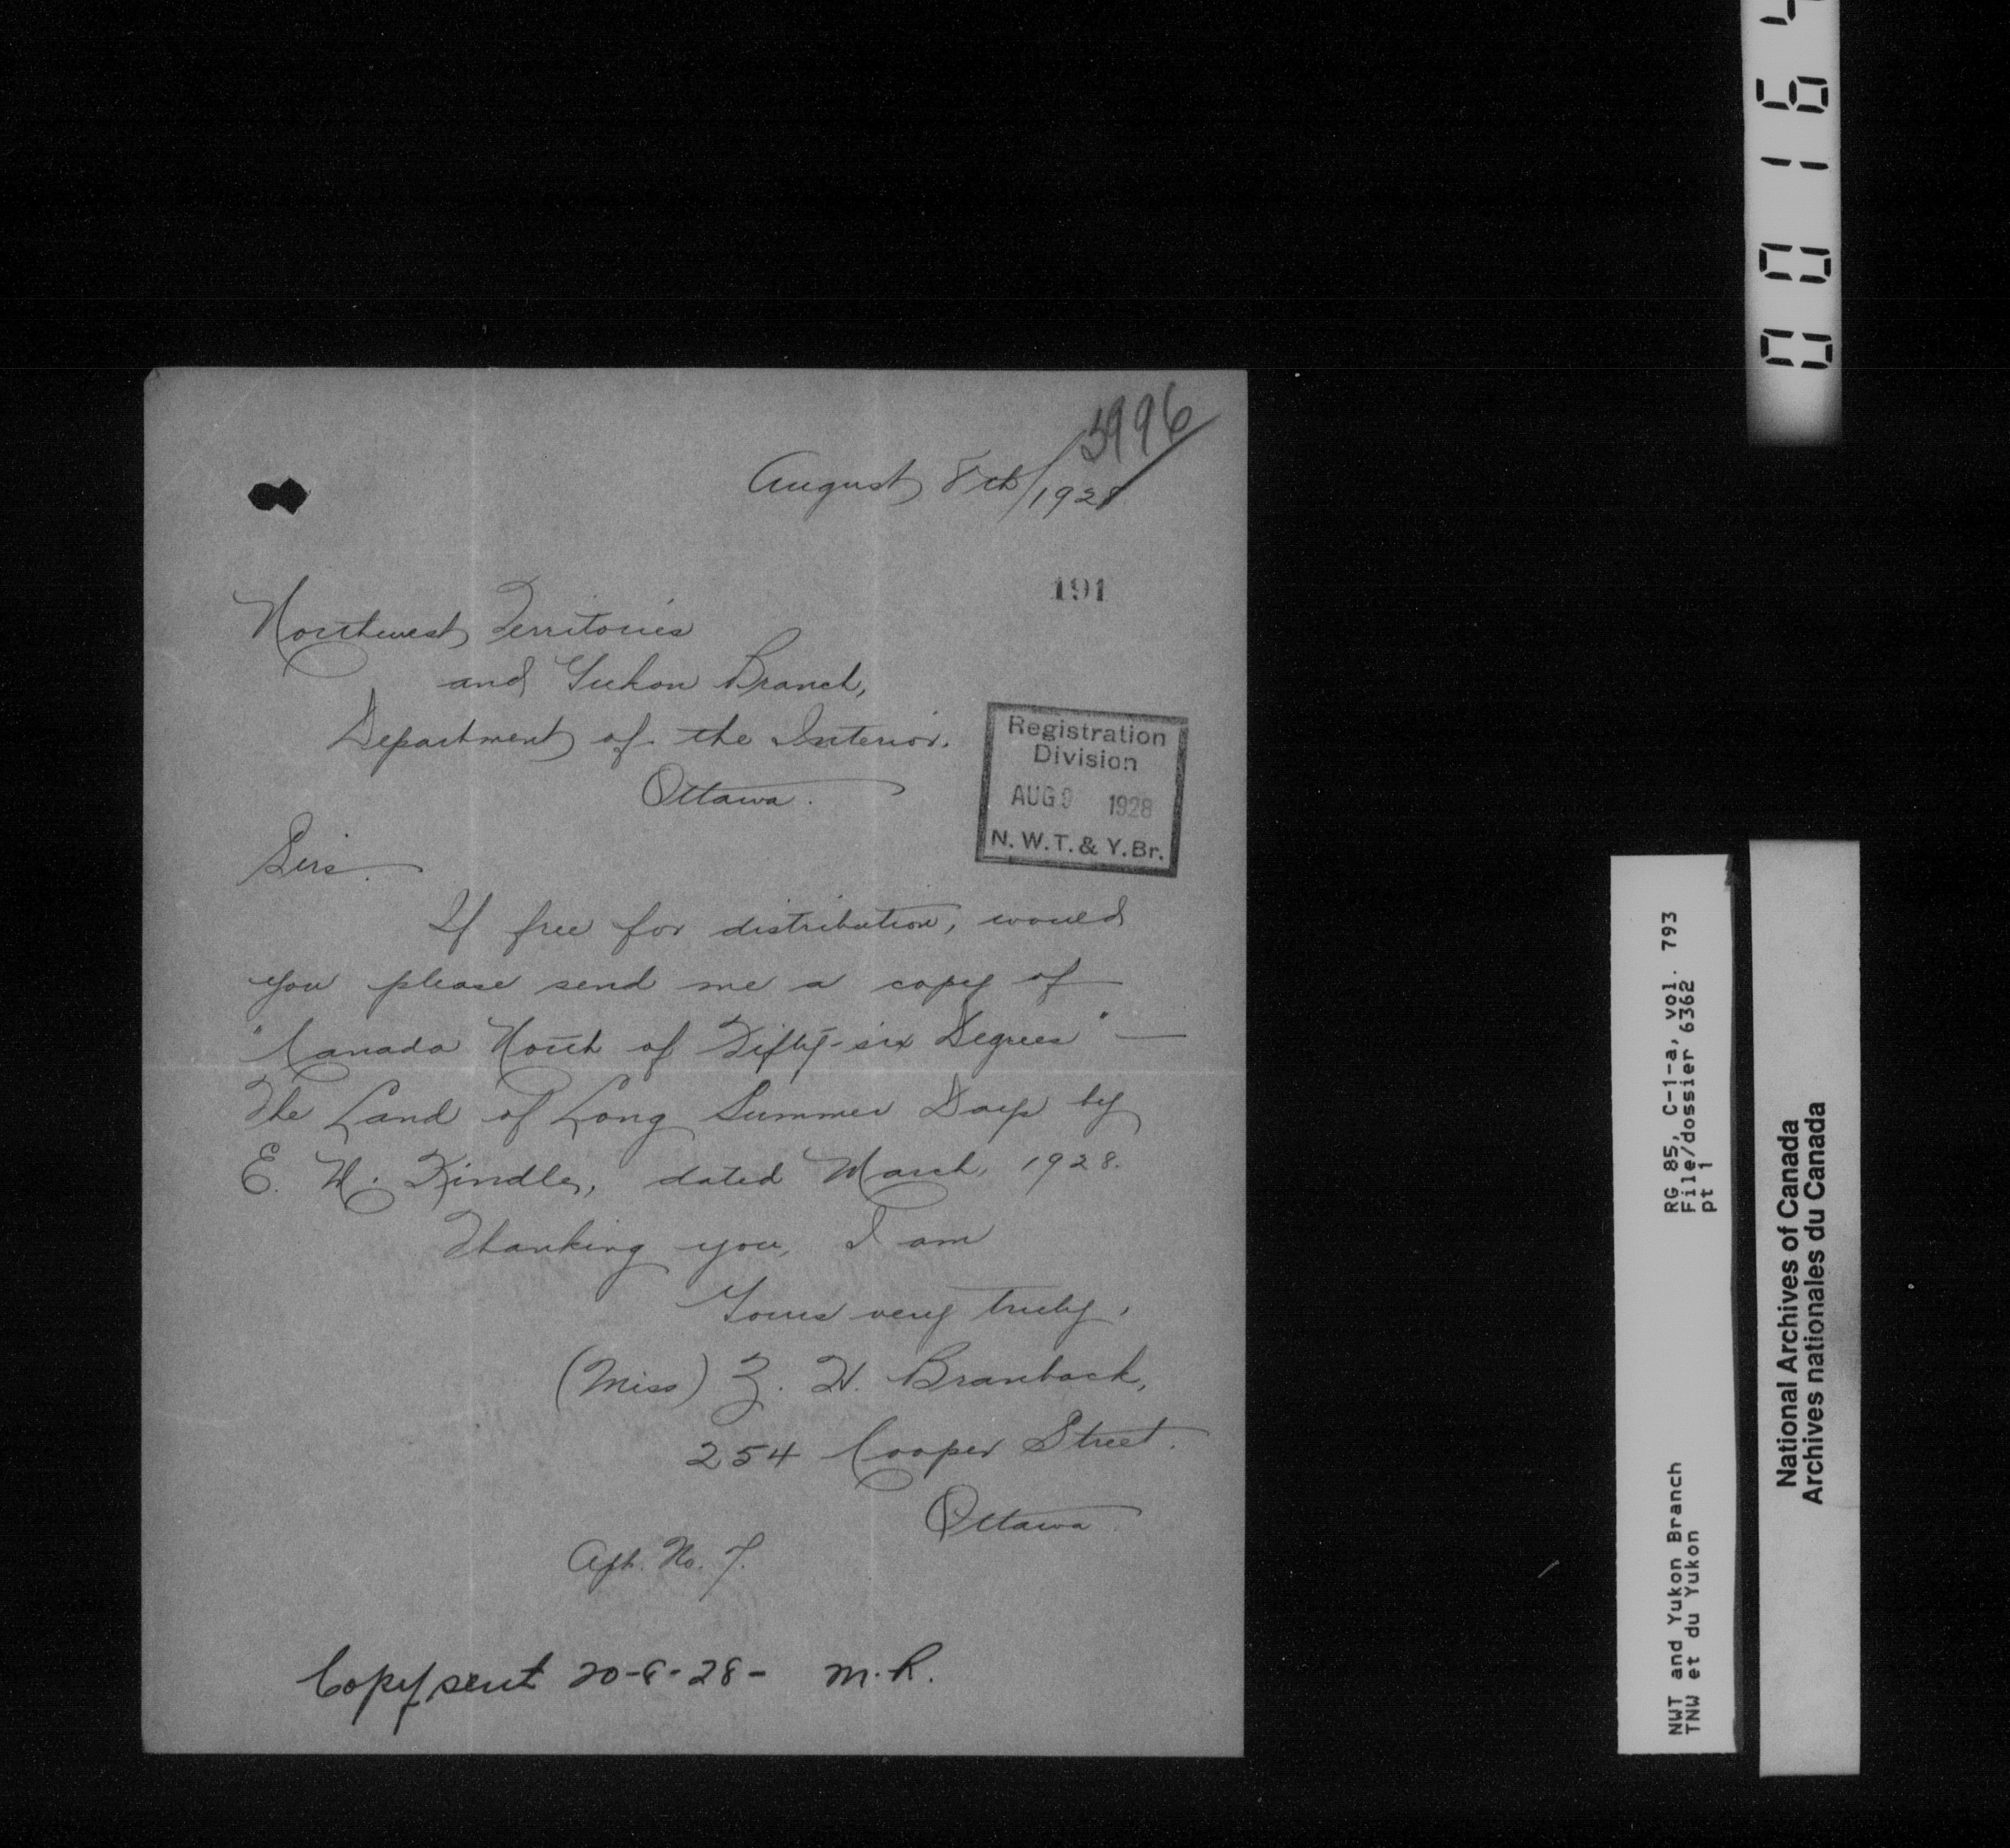 3996
August 8th/1928
191
Northwest Territories
and Yukon Branch,
Department of the Interior.
Ottawa.
Registration
Division
AUG 9 1928
N. W. T. & Y. Br.
Sirs.
If free for distribution, would
you please send me a copy of
"Canada North of Fifty-six Degrees" —
The Land of Long Summer Days by
E. M. Kindle, dated March, 1928.
Thanking you, I am
Yours very truly,
(Miss) Z. H. Brauback,
254 Cooper Street.
Ottawa.
Apt. No. 7.
Copy sent 20-8-28- M.R.
00164
RG 85, C-1-a, vol. 793
File/dossier 6362
pt 1
NWT and Yukon Branch
TNW et du Yukon
National Archives of Canada
Archives nationales du Canada